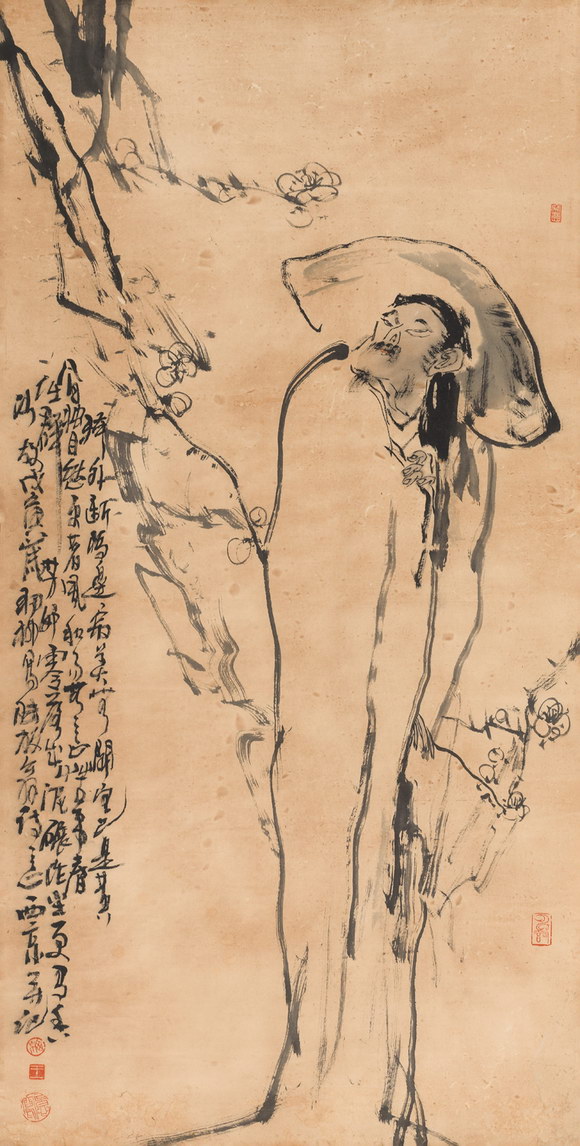 驛外斷橋邊寂寞開無主已是黃
昏獨自愁更着風和雨無意苦爭春
一任群芳妒零落成泥碾作塵只有香
如故戊寅歲初寫陸放翁詩意西京